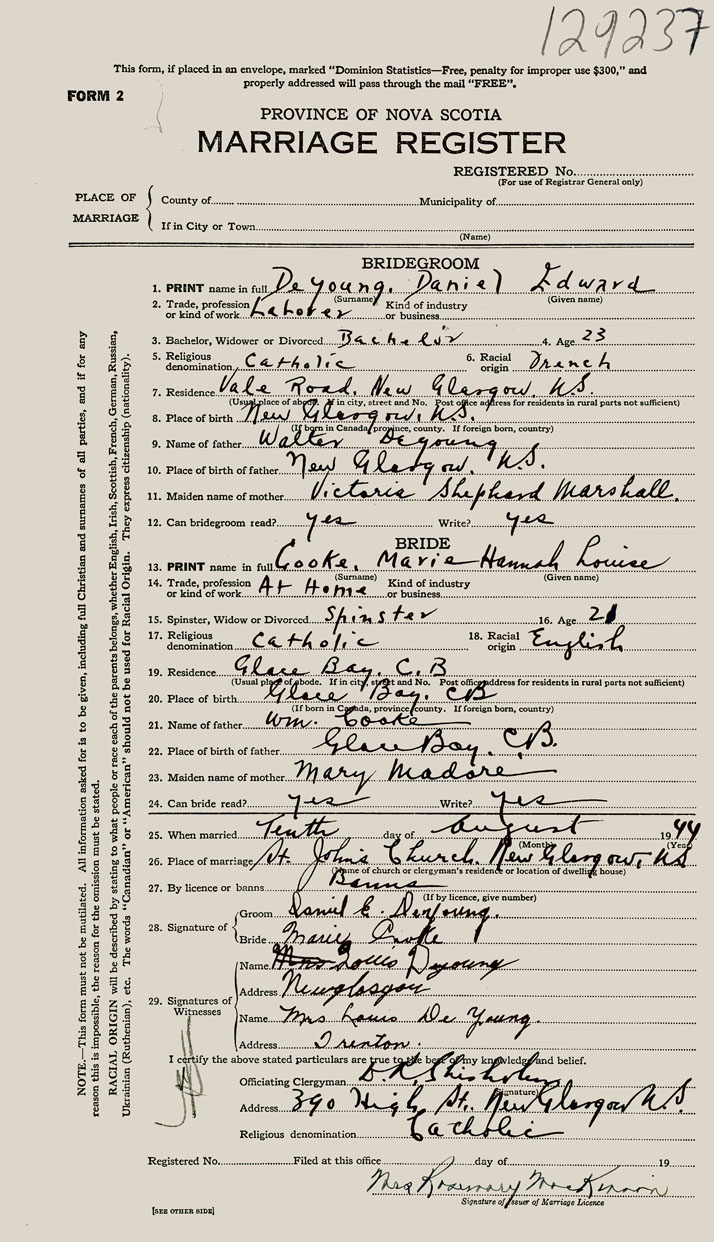 129237
This form, if placed in an envelope, marked "Dominion Statistics—Free, penalty for improper use $300," and
properly addressed will pass through the mail "FREE".
FORM 2
PROVINCE OF NOVA SCOTIA
MARRIAGE REGISTER
REGISTERED No.
(For use of Registrar General only)
PLACE OF MARRIAGE
County of Municipality of
If in City or Town
(Name)
BRIDEGROOM
1. PRINT name in full DeYoung, Daniel Edward
(Surname) (Given name)
2. Trade, profession or kind of work Laborer Kind of industry or business
3. Bachelor, Widower or Divorced Bachelor 4. Age 23
5. Religious denomination Catholic 6. Racial origin French
7. Residence Vale Road, New Glasgow, N.S.
(Usual place of abode. If in city, street and No. Post office address for residents in rural parts not sufficient)
8. Place of birth New Glasgow, N.S.
(If born in Canada, province, county. If foreign born, country)
9. Name of father Walter Deyoung
10. Place of birth of father New Glasgow, N.S.
11. Maiden name of mother Victoria Shephard Marshall.
12. Can bridegroom read? yes Write? yes
BRIDE
13. PRINT name in full Cooke, Marie Hannah Louise
(Surname) (Given name)
14. Trade, profession or kind of work At Home Kind of industry or business
15. Spinster, Widow or Divorced Spinster 16. Age 21
17. Religious denomination Catholic 18. Racial origin English
19. Residence Glace Bay, C.B
(Usual place of abode. If in city, street and No. Post office address for residents in rural parts not sufficient)
20. Place of birth Glace Bay, CB
(If born in Canada, province, county. If foreign born, country)
21. Name of father Wm. Cooke
22. Place of birth of father Glace Bay, C.B.
23. Maiden name of mother Mary Madore
24. Can bride read? yes Write? yes
25. When married Tenth day of August 1944
(Month) (Year)
26. Place of marriage St. John's Church, New Glasgow, NS
(Name of church or clergyman's residence or location of dwelling house)
27. By licence or banns Banns
(If by licence, give number)
28. Signature of
Groom Daniel E. DeYoung.
Bride Marie Cooke
29. Signatures of Witnesses
Name Mrs Louis Deyoung
Address New glasgow
Name Mrs Louis De Young.
Address Trenton.
I certify the above stated particulars are true to the best of my knowledge and belief.
Officiating Clergyman D. R. Chisholm
(Signature)
Address 390 High St. New Glasgow N.S.
Religious denomination Catholic
Registered No. Filed at this office day of 19
Mrs Rosemary MacKinnon
Signature of Issuer of Marriage Licence
[SEE OTHER SIDE]
NOTE.—This form must not be mutilated. All information asked for is to be given, including full Christian and surnames of all parties, and if for any
reason this is impossible, the reason for the omission must be stated.
RACIAL ORIGIN will be described by stating to what people or race each of the parents belongs, whether English, Irish, Scottish, French, German, Russian,
Ukrainian (Ruthenian), etc. The words "Canadian" or "American" should not be used for Racial Origin. They express citizenship (nationality).